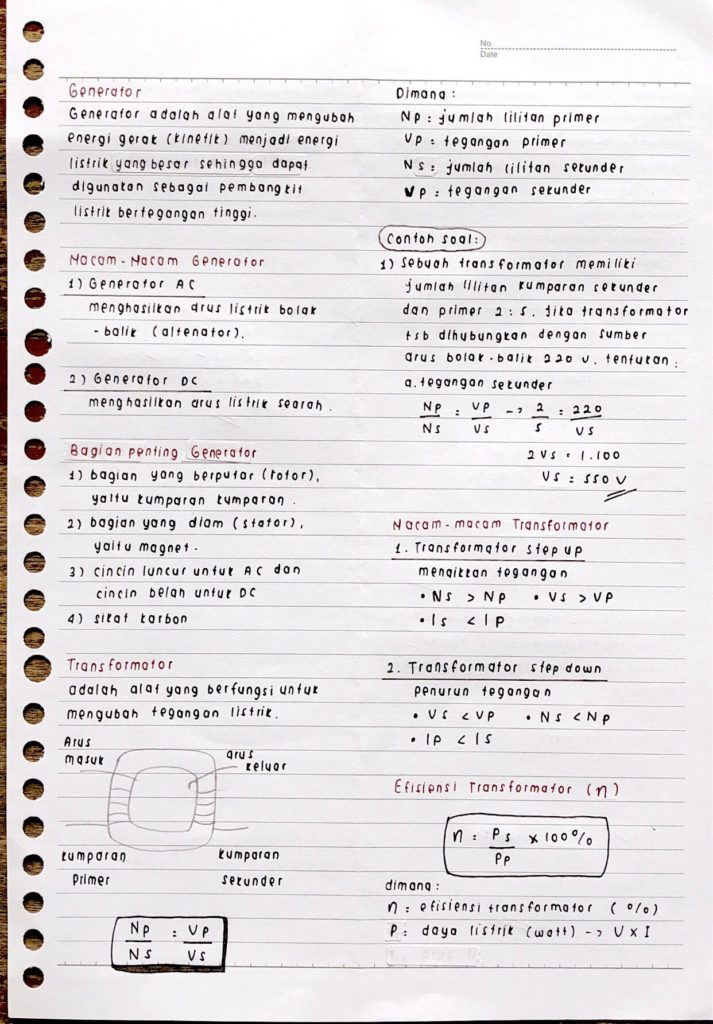 No.
Date
Generator
Generator adalah alat yang mengubah
energi gerak (kinetik) menjadi energi
listrik yang besar sehingga dapat
digunakan sebagai pembangkit
listrik bertegangan tinggi.
Macam-Macam Generator
1) Generator AC
menghasilkan arus listrik bolak
-balik (altenator).
2) Generator DC
menghasilkan arus listrik searah.
Bagian penting Generator
1) bagian yang berputar (rotor),
yaitu kumparan kumparan.
2) bagian yang diam (stator),
yaitu magnet.
3) cincin luncur untuk AC dan
cincin belah untuk DC
4) sikat karbon
Transformator
adalah alat yang berfungsi untuk
mengubah tegangan listrik.
Arus
masuk
arus
keluar
kumparan
Primer
kumparan
sekunder
Np/Ns = Vp/Vs
Dimana:
Np = jumlah lilitan primer
Vp = tegangan primer
Ns = jumlah lilitan sekunder
Vp = tegangan sekunder
Contoh soal:
1) Sebuah transformator memiliki
jumlah lilitan kumparan sekunder
dan primer 2:5. jika transformator
tsb dihubungkan dengan sumber
arus bolak-balik 220 V. tentukan:
a. tegangan sekunder
Np/Ns = Vp/Vs -> 2/5 = 220/Vs
2Vs = 1.100
Vs = 550 V
Macam-macam Transformator
1. Transformator step up
menaikkan tegangan
• Ns > Np • Vs > Vp
• Is < Ip
2. Transformator step down
penurun tegangan
• Vs < Vp • Ns < Np
• Ip < Is
Efisiensi Transformator (η)
η = Ps/Pp x 100%
dimana:
η = efisiensi transformator (%)
P = daya listrik (watt) -> V x I